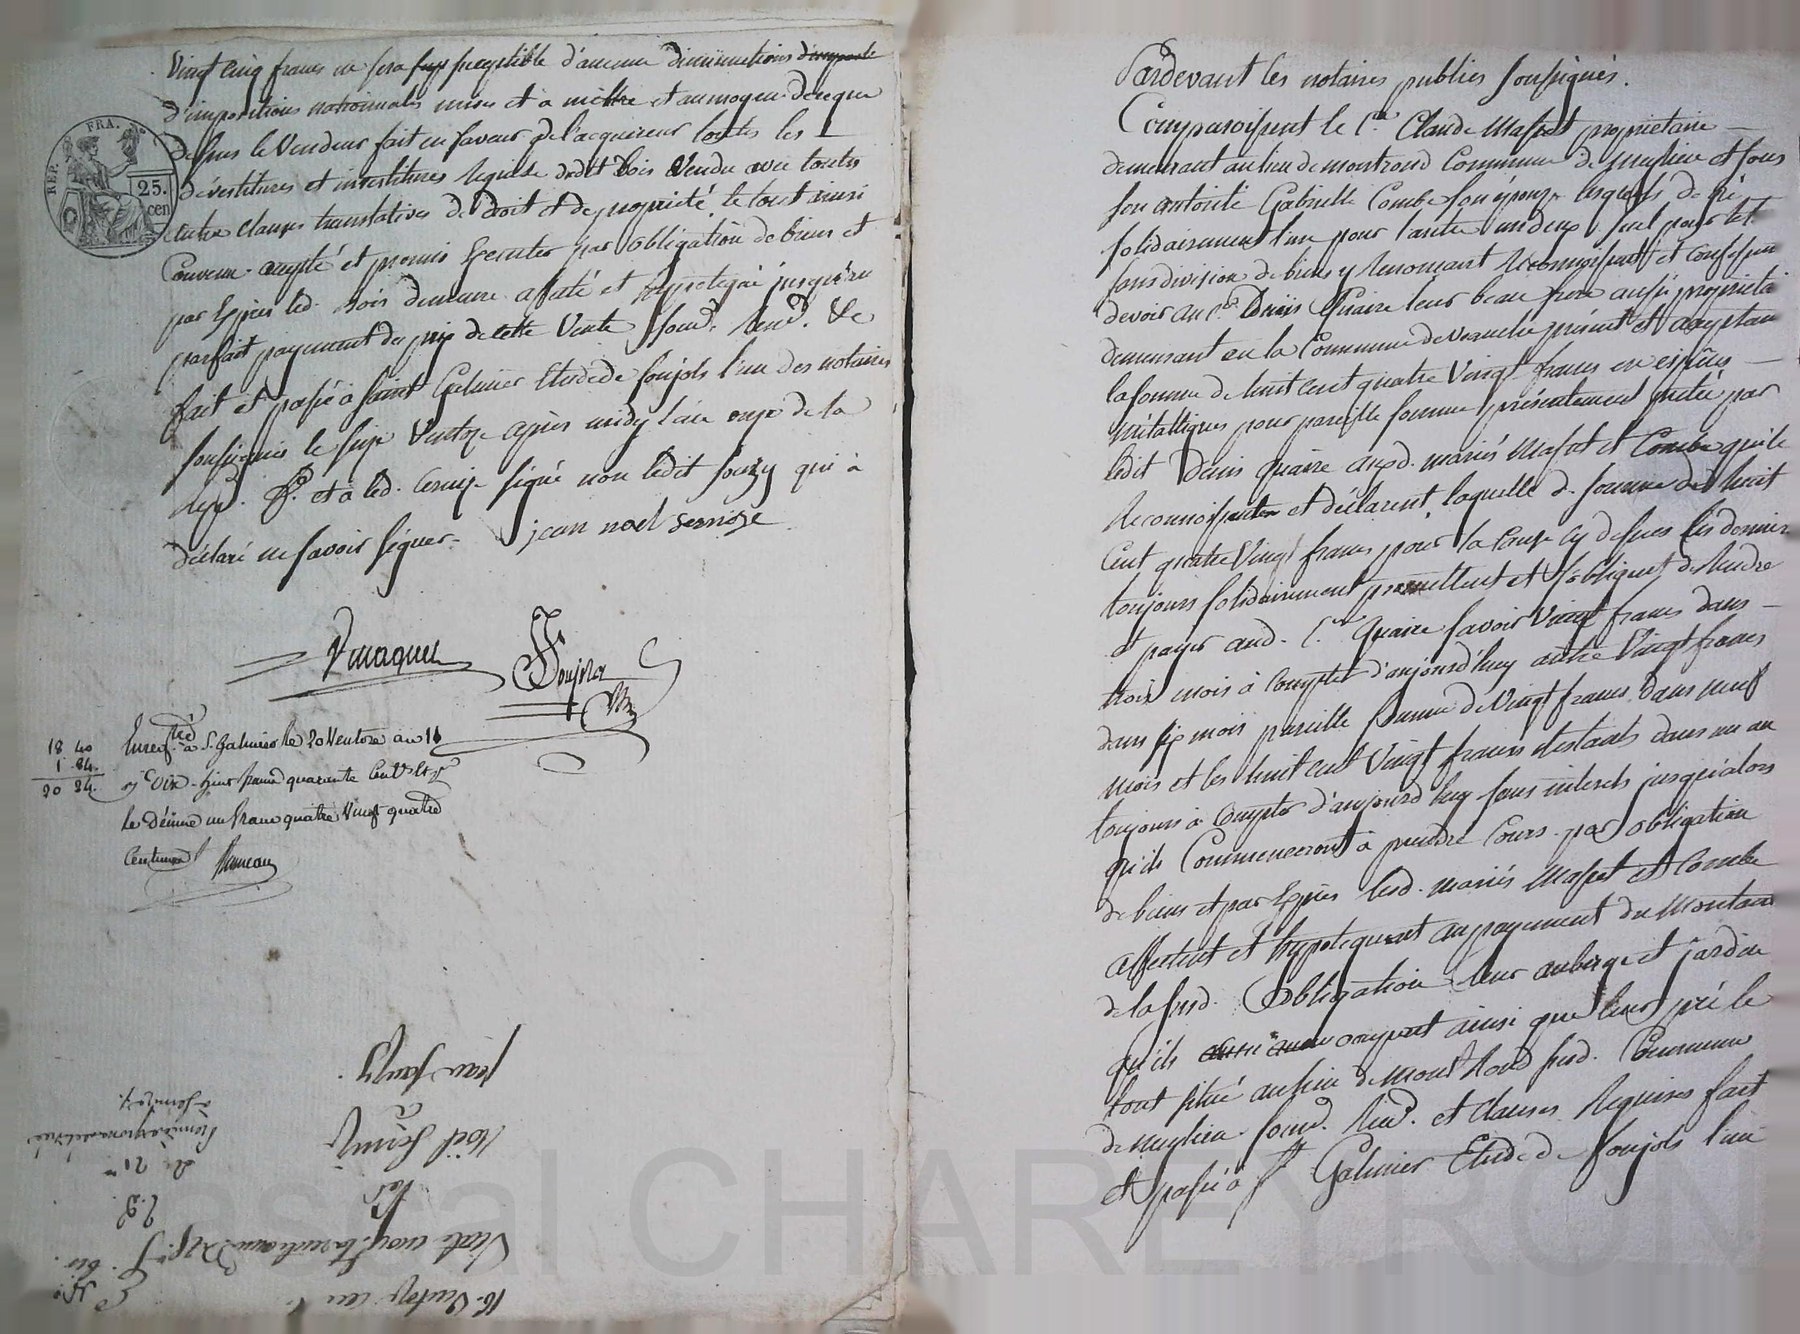 Vingt cinq francs ne sera susceptible d'aucune diminutions
d'impositions nationnales mises et a mettre et au moyen de que
dessus le vendeur fait en faveur de l'acquereur toutes les
devestitures et investitures requise dudit bois vendu avec toutes
autre clauses translatives de droit et de propriété, le tout ainsi
convenu accepté et promis executer par obligation de biens et
par exprès led. bois demeure afecté et hypotequé jusqu'au
parfait payement du prix de cette vente soud. rend. &c
fait et passé à Saint Galmier Etude de soujols l'un des notaires
soussignés le seize Ventose après midy l'an onze de la
repd. f. et a led. signé non ledit jouzy qui à
déclaré ne savoir signer.
jean noel
REP. FRA.
25. cen
Soujols
Enregtré à St Galmier le 20 Ventose an 11
18 40
1 84.
20 24.
dix huit francs quarante cent.
le décime un franc quatre vingt quatre
centimes
16. Ventose an
Vente
par
Noël
à
jean jouzy.
Le 21
Pardevant les notaires publics soussignés.
Comparoissent le Cen Claude Masset propriétaire
demeurant au lieu de montrond Commune de meylieu et sous
son autorité Gabrielle Combe son épouse lesquels de gré
solidairement l'un pour l'autre un d'eux seul pour le tt
sans division de biens y renonçant reconnoissent et confessent
devoir au Cen Denis Quaire leur beau frere aussi propriéta
demeurant en la Commune de veauche présent et acceptan
la somme de huit cent quatre Vingt francs en espèces
métalliques pour pareille somme présentement pretée par
ledit Denis Quaire auxd. mariés Masset et Combe qu'ile
Reconnoissent et déclarent, laquelle d. somme de huit
Cent quatre Vingt francs pour la cause cy dessus les dernier
toujours solidairement promettent et s'obligent de rendre
et payer aud. Cen Quaire savoir Vingt francs dans
trois mois à compter d'aujourd'huy autre Vingt francs
dans six mois pareille somme de Vingt francs dans neuf
mois et les huit cent Vingt francs restants dans un an
toujours à compter d'aujourd'huy sans interets jusqu'alors
qu'ils Commenceront à prendre Cours par obligation
de biens et par exprès lesd. mariés Masset et Combe
affectent et hypotequent au payement du Montant
de la susd. Obligation leur auberge et jardin
qu'ils occupent ainsi que leur pré le
tout situé au lieu de montrond susd. Commune
de meylieu. soud. rend. et clauses requises fait
et passé à St Galmier Etude de soujols l'un
Pascal CHAREYRON